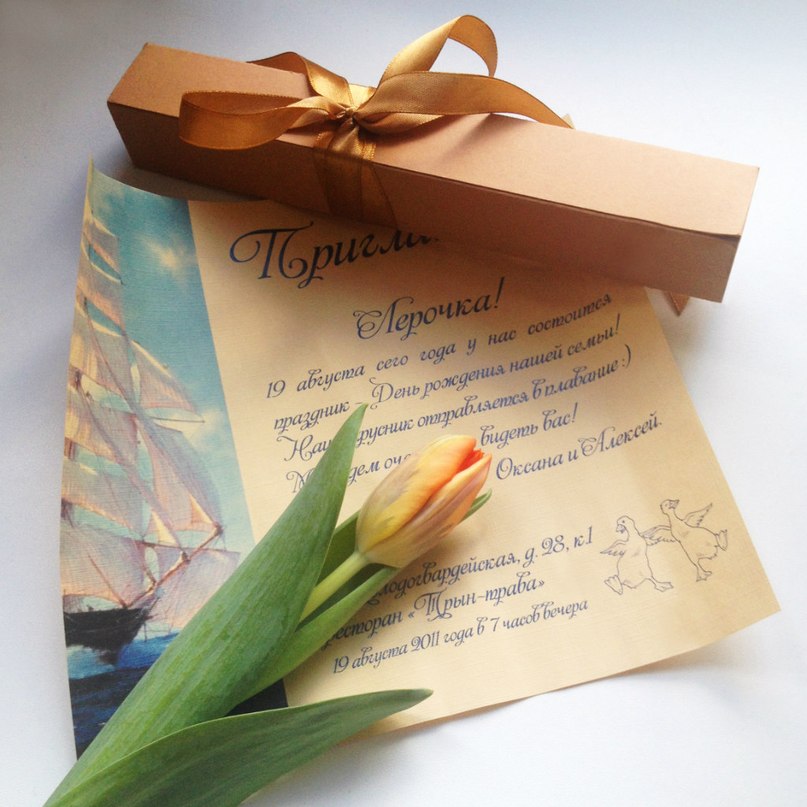 Лерочка!
19 августа сего года у нас состоится
праздник - День рождения нашей семьи!
отправляется в плавание :)
видеть вас!
Оксана и Алексей.
д. 28, к.1
ресторан «Трын-трава»
19 августа 2011 года в 7 часов вечера